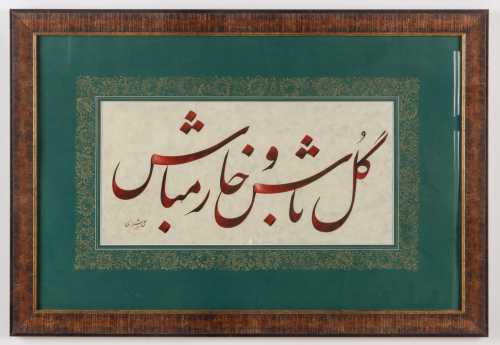 گُل باش و خار مباش